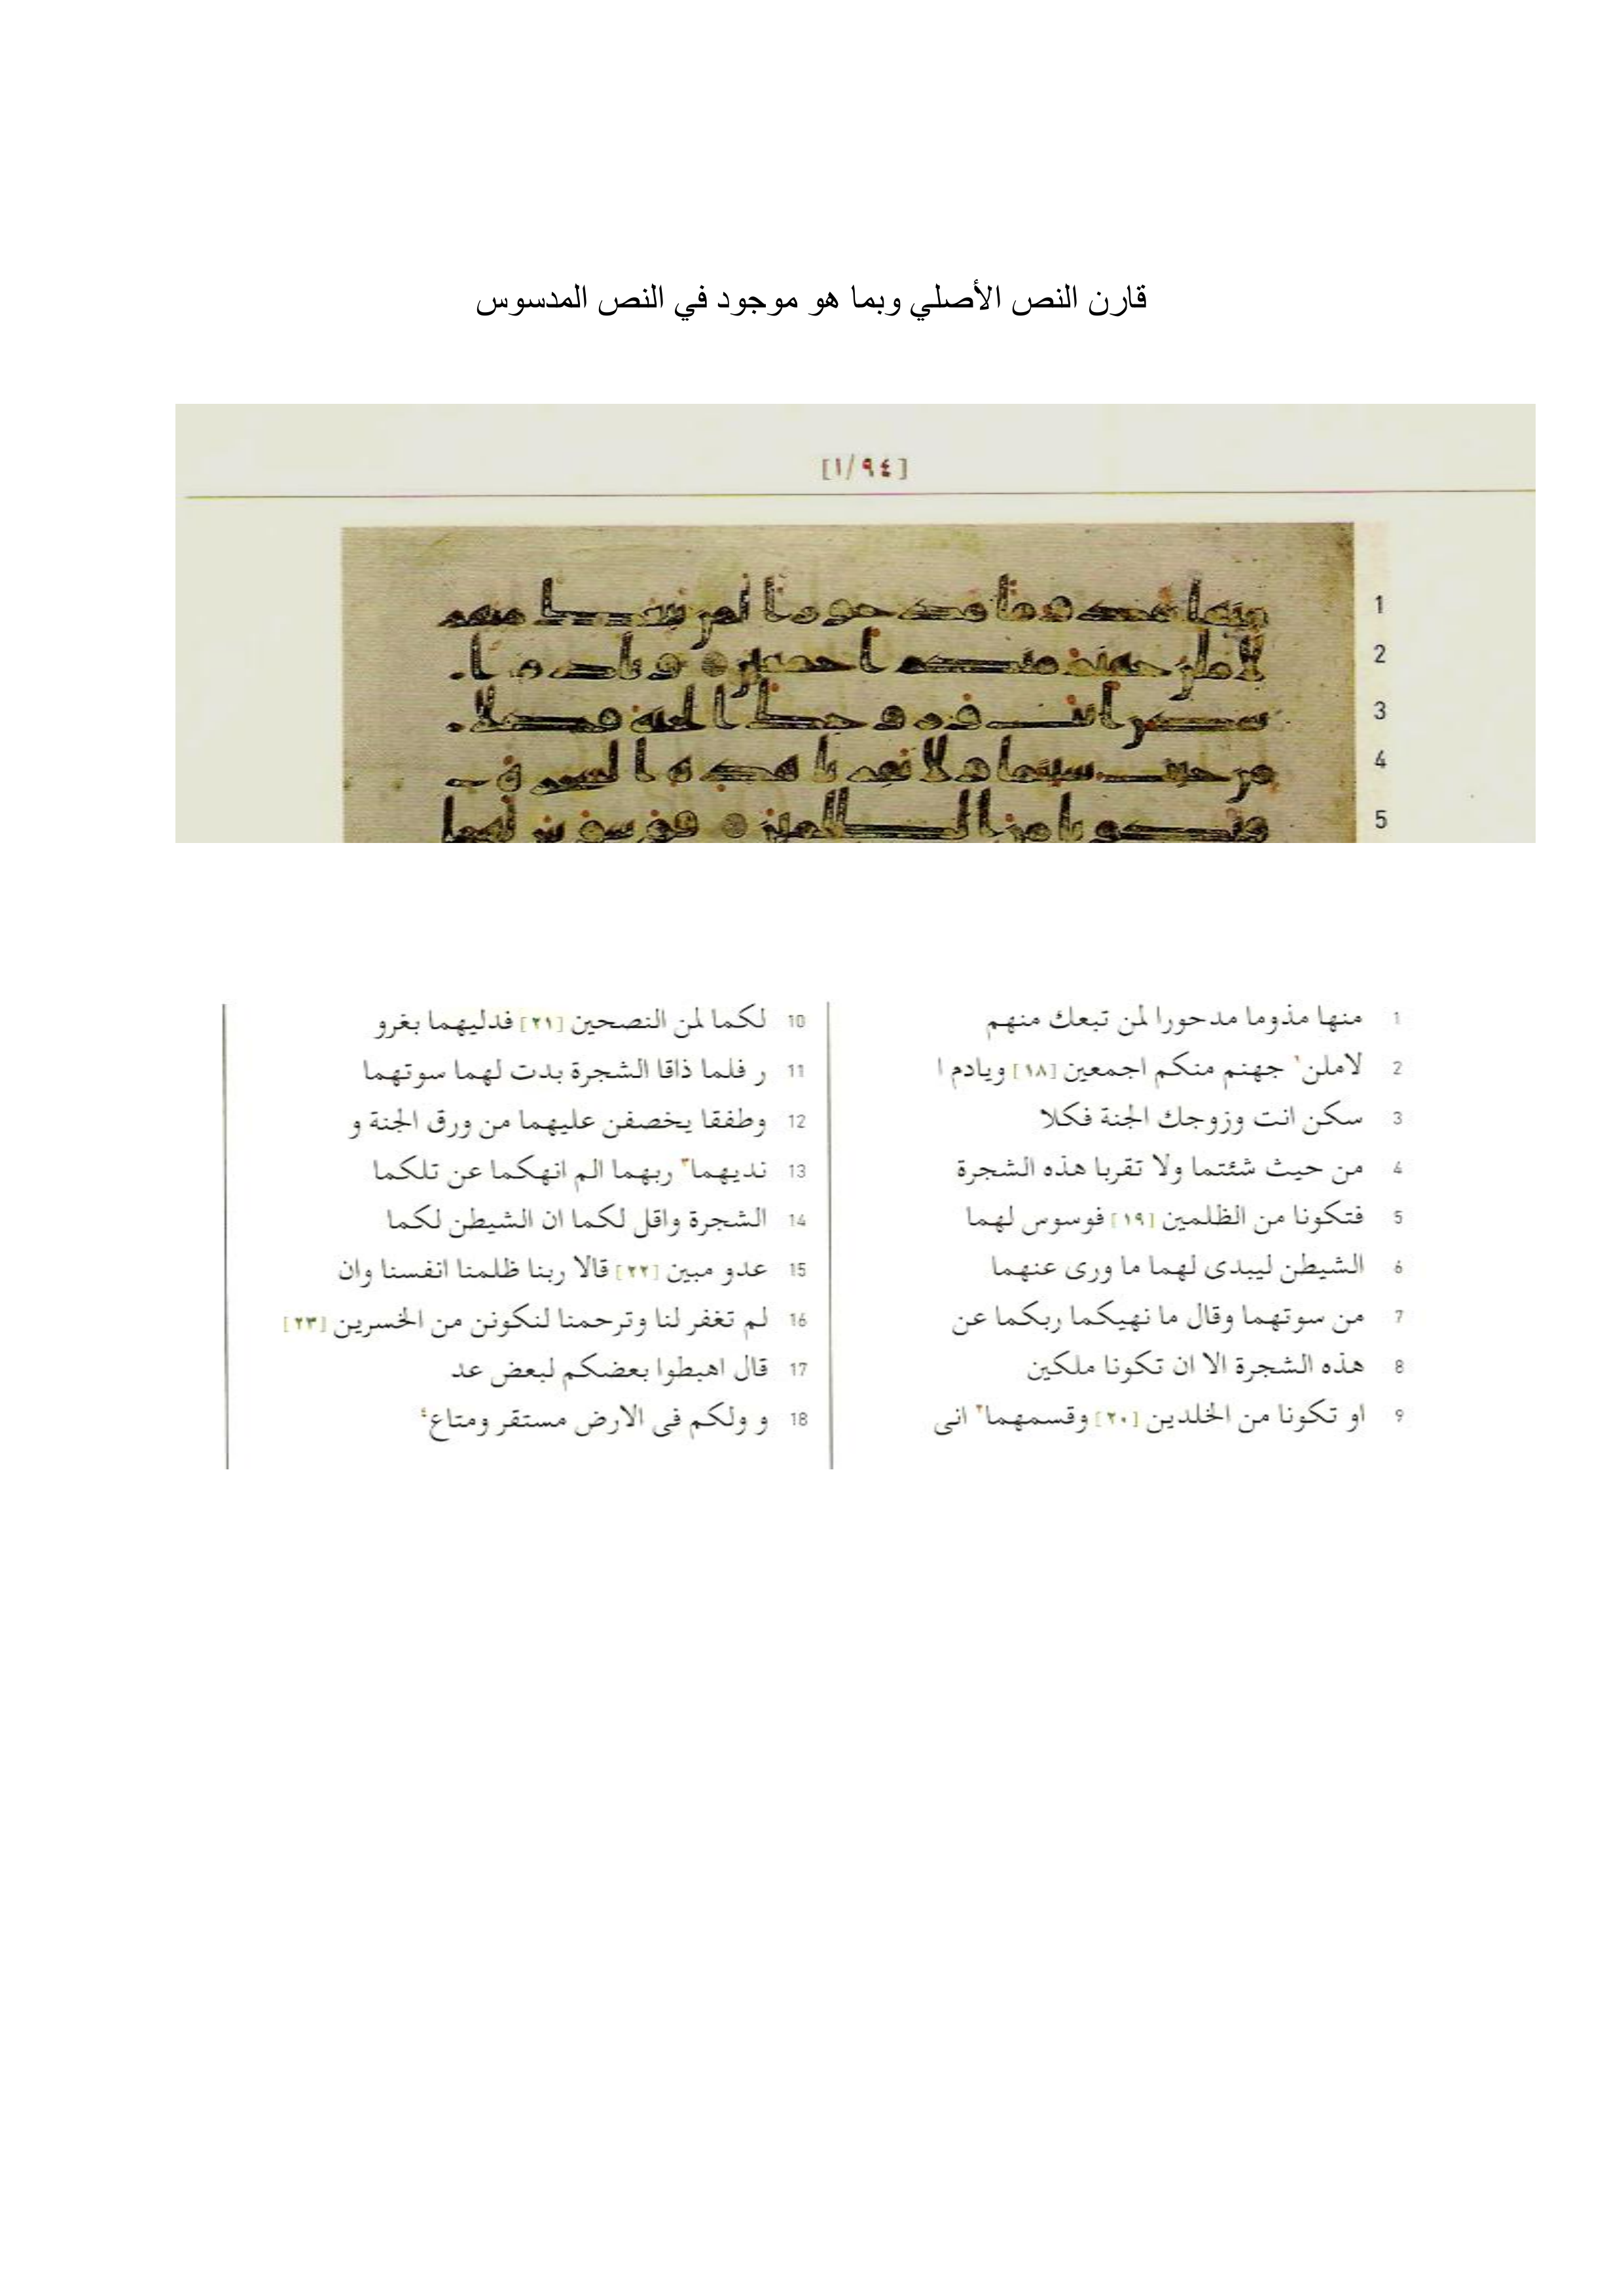 قارن النص الأصلي وبما هو موجود في النص المدسوس
[١/٩٤]
1
2
3
4
5
1 منها مذوما مدحورا لمن تبعك منهم
2 لاملن١ جهنم منكم اجمعين [١٨] ويادم ا
3 سكن انت وزوجك الجنة فكلا
4 من حيث شئتما ولا تقربا هذه الشجرة
5 فتكونا من الظلمين [١٩] فوسوس لهما
6 الشيطن ليبدى لهما ما ورى عنهما
7 من سوتهما وقال ما نهيكما ربكما عن
8 هذه الشجرة الا ان تكونا ملكين
9 او تكونا من الخلدين [٢٠] وقسمهما٢ انى
10 لكما لمن النصحين [٢١] فدليهما بغرو
11 ر فلما ذاقا الشجرة بدت لهما سوتهما
12 وطفقا يخصفن عليهما من ورق الجنة و
13 نديهما٣ ربهما الم انهكما عن تلكما
14 الشجرة واقل لكما ان الشيطن لكما
15 عدو مبين [٢٢] قالا ربنا ظلمنا انفسنا وان
16 لم تغفر لنا وترحمنا لنكونن من الخسرين [٢٣]
17 قال اهبطوا بعضكم لبعض عد
18 و ولكم فى الارض مستقر ومتاع٤